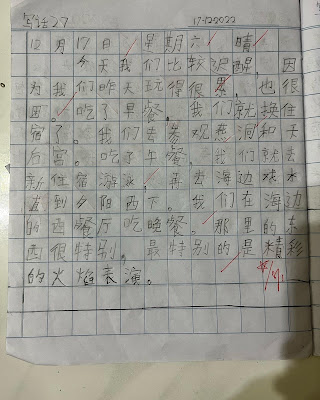 写话27 17-122022
12月17日 星期六 晴
今天我们比较迟醒，因
为我们昨天玩得很累，也很
困。吃了早餐，我们就换住
宿了。我们去参观燕河和天
后宫。吃了午餐，我们就去
新住宿游泳，再去海边戏水
直到夕阳西下。我们在海边
的西餐厅吃晚餐。那里的东
西很特别。最特别的是精彩
的火焰表演。